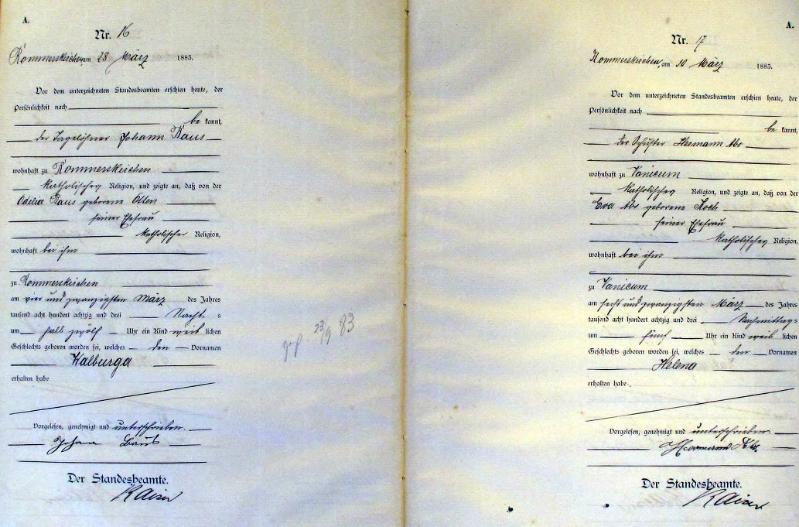 A.
Nr. 16
Rommerskirchen, am 28 März 1883.
Vor dem unterzeichneten Standesbeamten erschien heute, der
Persönlichkeit nach
be kannt,
der Tagelöhner Johann Baus
wohnhaft zu Rommerskirchen
katholischer Religion, und zeigte an, daß von der
Odilia Baus geborene Ollen
seiner Ehefrau
katholischer Religion,
wohnhaft bei ihm
zu Rommerskirchen
am vier und zwanzigsten März des Jahres
tausend acht hundert achtzig und drei Nachts
um halb zwölf Uhr ein Kind weib lichen
Geschlechts geboren worden sei, welches den Vornamen
Walburga
erhalten habe
Vorgelesen, genehmigt und unterschrieben
Johan Baus
Der Standesbeamte.
Kaiser
gef 23/9 83
A.
Nr. 17
Rommerskirchen, am 30 März 1883.
Vor dem unterzeichneten Standesbeamten erschien heute, der
Persönlichkeit nach
be kannt,
der Schuster Hermann Abs
wohnhaft zu Vanicum
katholischer Religion, und zeigte an, daß von der
Eva Abs geborene Koch
seiner Ehefrau
katholischer Religion
wohnhaft bei ihm
zu Vanicum
am sechs und zwanzigsten März des Jahres
tausend acht hundert achtzig und drei Nachmittags
um fünf Uhr ein Kind weib lichen
Geschlechts geboren worden sei, welches den Vornamen
Helena
erhalten habe
Vorgelesen, genehmigt und unterschrieben
Hermann Abs
Der Standesbeamte.
Kaiser